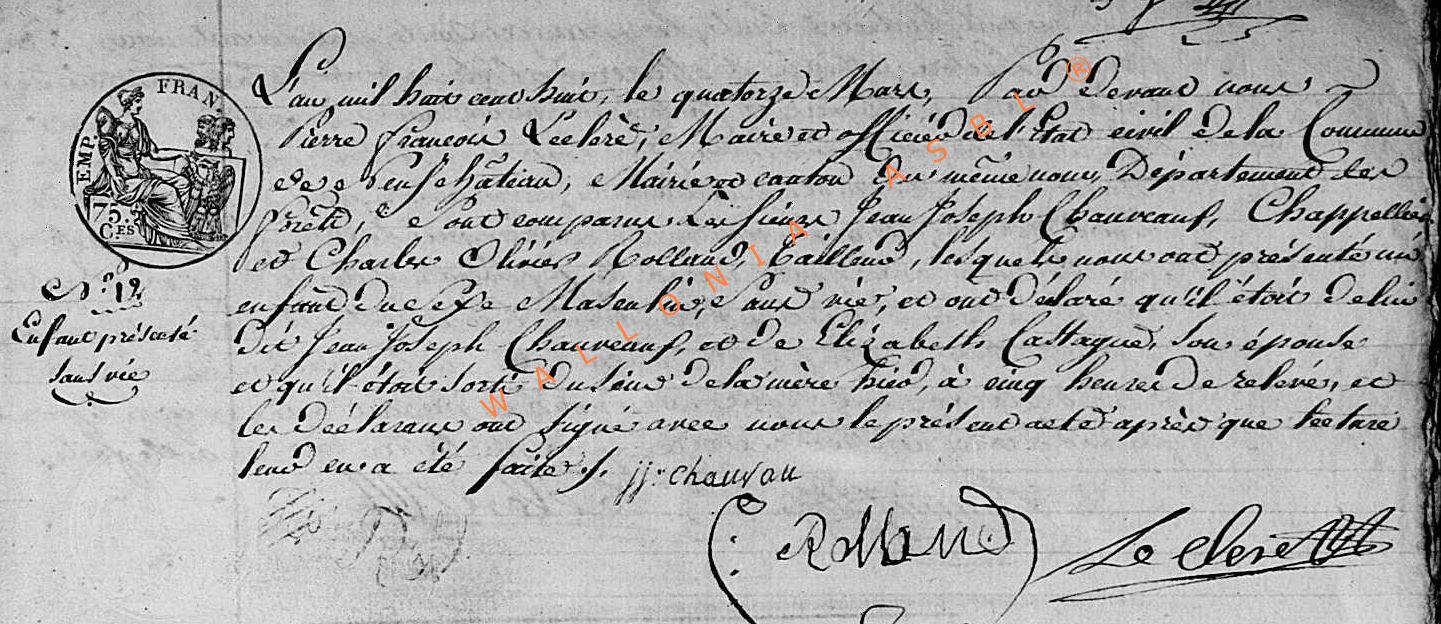 EMP. FRAN.
75. C.ES
N.º 12
Enfant présenté
sans vie
L'an mil huit cent huit, le quatorze Mars, Par devant nous
Pierre François Leclerc, Maire et officier de l'Etat civil de la Commune
de Neufchâteau, Mairie et canton du même nom, Département des
forêts, Sont comparus Les sieurs Jean Joseph Chauveauf, Chappellier
et Charles Olivier Rolland, tailleur, lesquels nous ont présenté un
enfant du sexe Masculin, Sans vie, et ont déclaré qu'il étoit de lui
dit Jean Joseph Chauveauf, et de Elizabeth Castagne, son épouse
et qu'il étoit sorti du sein de la mère hier, à cinq heures de relevé, et
les déclarans ont signé avec nous le présent acte après que lecture
leur en a été faite ./. jj. chauvau
Rolland
Leclerc
WALLONIA ASBL ®